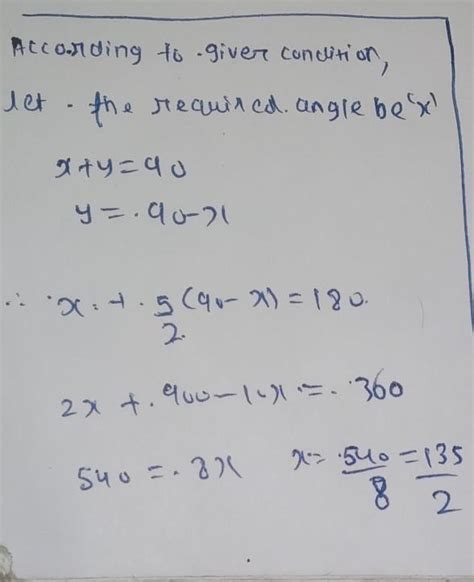 According to given condition,
let the required angle be 'x'
x+y=90
y=90-x
∴ x + 5/2 (90-x) = 180
2x + 900-10x = 360
540 = 8x    x = 540/8 = 135/2